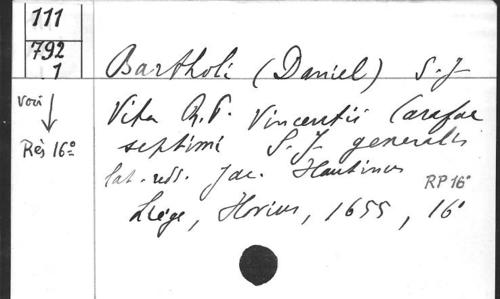 111
792
1
Voir
Rés 16º
Bartholi (Daniel) S.J
Vita R.P. Vincentii Carafae
septimi S.J. generalis
lat. redd. Jac. Hautinus
RP 16º
Liège, Hovius, 1655, 16º